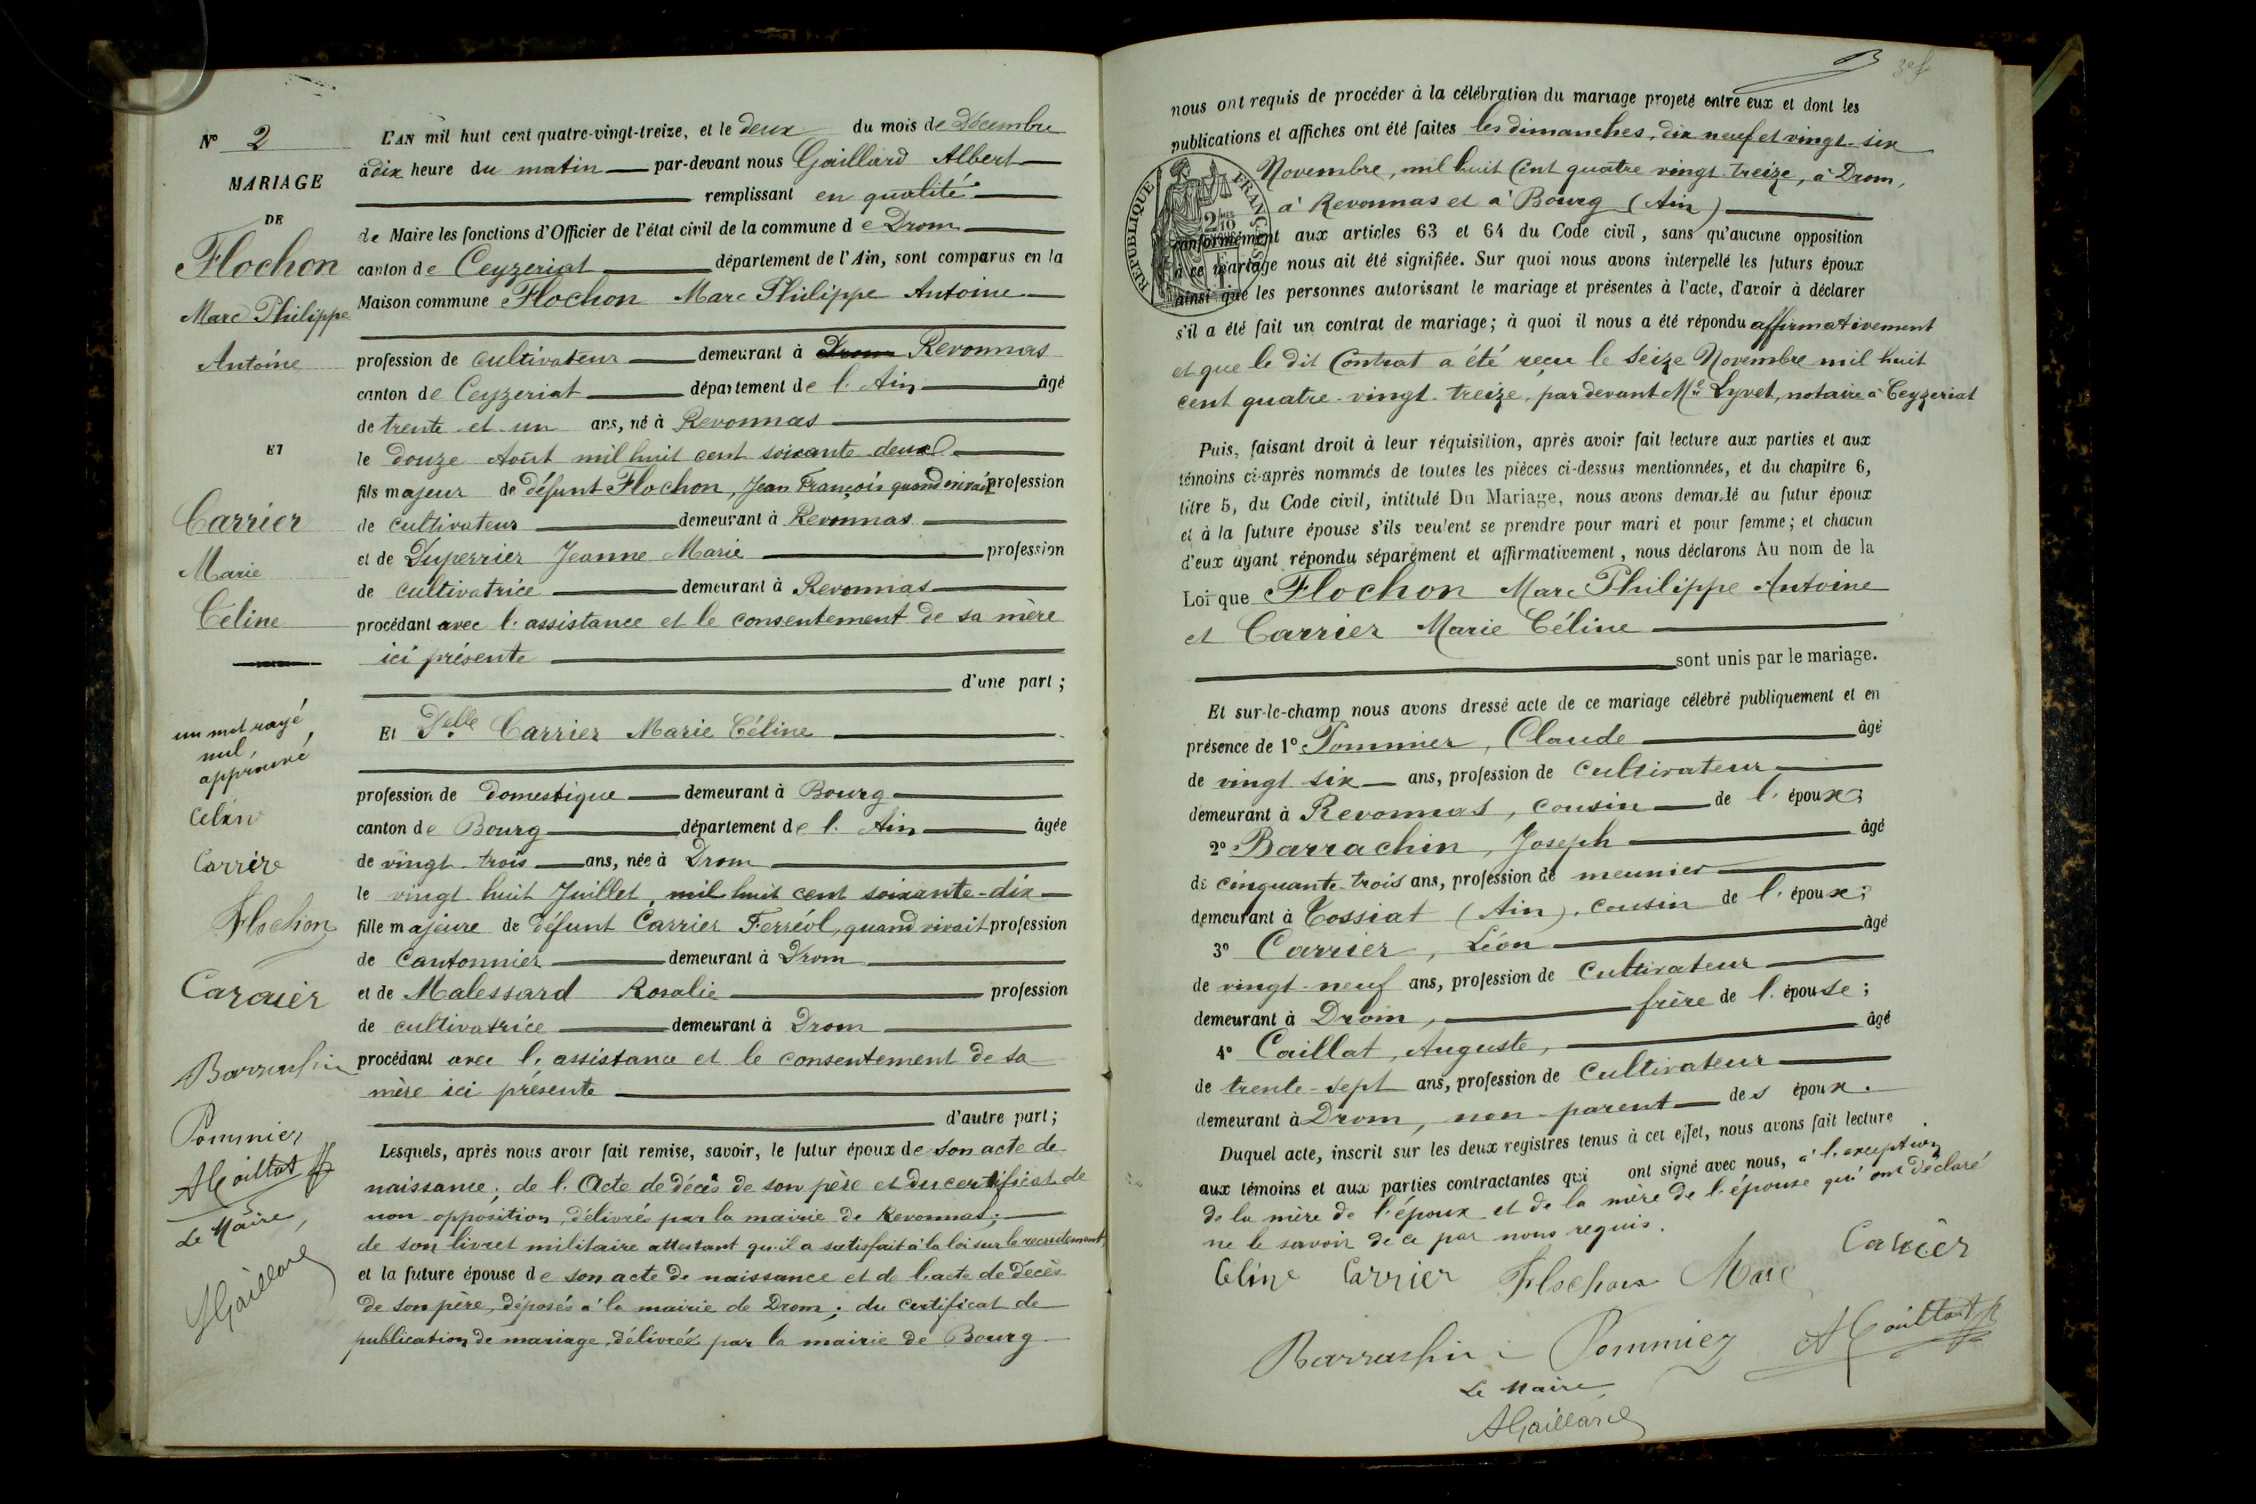 Nº 2
MARIAGE
DE
Flochon
Marc Philippe
Antoine
ET
Carrier
Marie
Céline
un mot rayé
nul,
approuvé
Céline
Carrier
Flochon
Carrier
Barrachin
Pommier
A Caillat
Le Maire,
AGaillard
L'AN mil huit cent quatre-vingt-treize, et le deux du mois de Décembre
à dix heure du matin par-devant nous Gaillard Albert
remplissant en qualité
de Maire les fonctions d'Officier de l'état civil de la commune de Drom
canton de Ceyzeriat département de l'Ain, sont comparus en la
Maison commune Flochon Marc Philippe Antoine
profession de cultivateur demeurant à Drom Revonnas
canton de Ceyzeriat département de l'Ain âgé
de trente et un ans, né à Revonnas
le douze Août mil huit cent soixante deux
fils majeur de défunt Flochon, Jean François quand vivait profession
de cultivateur demeurant à Revonnas
et de Duperrier Jeanne Marie profession
de cultivatrice demeurant à Revonnas
procédant avec l'assistance et le consentement de sa mère
ici présente
d'une part ;
Et Delle Carrier Marie Céline
profession de domestique demeurant à Bourg
canton de Bourg département de l'Ain âgée
de vingt-trois ans, née à Drom
le vingt-huit Juillet, mil huit cent soixante-dix
fille majeure de défunt Carrier Ferréol, quand vivait profession
de Cantonnier demeurant à Drom
et de Malessard Rosalie profession
de cultivatrice demeurant à Drom
procédant avec l'assistance et le consentement de sa
mère ici présente
d'autre part ;
Lesquels, après nous avoir fait remise, savoir, le futur époux de son acte de
naissance ; de l'Acte de décès de son père et du certificat de
non-opposition, délivrés par la mairie de Revonnas ;
de son livret militaire attestant qu'il a satisfait à la loi sur le recrutement
et la future épouse de son acte de naissance et de l'acte de décès
de son père, déposés à la mairie de Drom ; du certificat de
publication de mariage, délivrée par la mairie de Bourg
nous ont requis de procéder à la célébration du mariage projeté entre eux et dont les
publications et affiches ont été faites les dimanches, dix neuf et vingt-six
Novembre, mil huit cent quatre vingt-treize, à Drom,
à Revonnas et à Bourg (Ain)
RÉPUBLIQUE FRANÇAISE
conformément aux articles 63 et 64 du Code civil, sans qu'aucune opposition
à ce mariage nous ait été signifiée. Sur quoi nous avons interpellé les futurs époux
ainsi que les personnes autorisant le mariage et présentes à l'acte, d'avoir à déclarer
s'il a été fait un contrat de mariage ; à quoi il nous a été répondu affirmativement
et que le dit Contrat a été reçu le Seize Novembre mil huit
cent quatre-vingt-treize, par devant Me Lyvet, notaire à Ceyzeriat
Puis, faisant droit à leur réquisition, après avoir fait lecture aux parties et aux
témoins ci-après nommés de toutes les pièces ci-dessus mentionnées, et du chapitre 6,
titre 5, du Code civil, intitulé Du Mariage, nous avons demandé au futur époux
et à la future épouse s'ils veulent se prendre pour mari et pour femme ; et chacun
d'eux ayant répondu séparément et affirmativement, nous déclarons Au nom de la
Loi que Flochon Marc Philippe Antoine
et Carrier Marie Céline
sont unis par le mariage.
Et sur-le-champ nous avons dressé acte de ce mariage célébré publiquement et en
présence de 1º Pommier, Claude âgé
de vingt six ans, profession de Cultivateur
demeurant à Revonnas, cousin de l'époux ;
2º Barrachin, Joseph âgé
de cinquante-trois ans, profession de meunier
demeurant à Tossiat (Ain), cousin de l'époux ;
3º Carrier, Léon âgé
de vingt-neuf ans, profession de Cultivateur
demeurant à Drom, frère de l'épouse ;
4º Caillat, Auguste, âgé
de trente-sept ans, profession de Cultivateur
demeurant à Drom, non-parent des époux.
Duquel acte, inscrit sur les deux registres tenus à cet effet, nous avons fait lecture
aux témoins et aux parties contractantes qui ont signé avec nous, à l'exception
de la mère de l'époux et de la mère de l'épouse qui ont déclaré
ne le savoir de ce par nous requis.
Céline Carrier Flochon Marc Carrier
Barrachin Pommier A Caillat
Le Maire
AGaillard